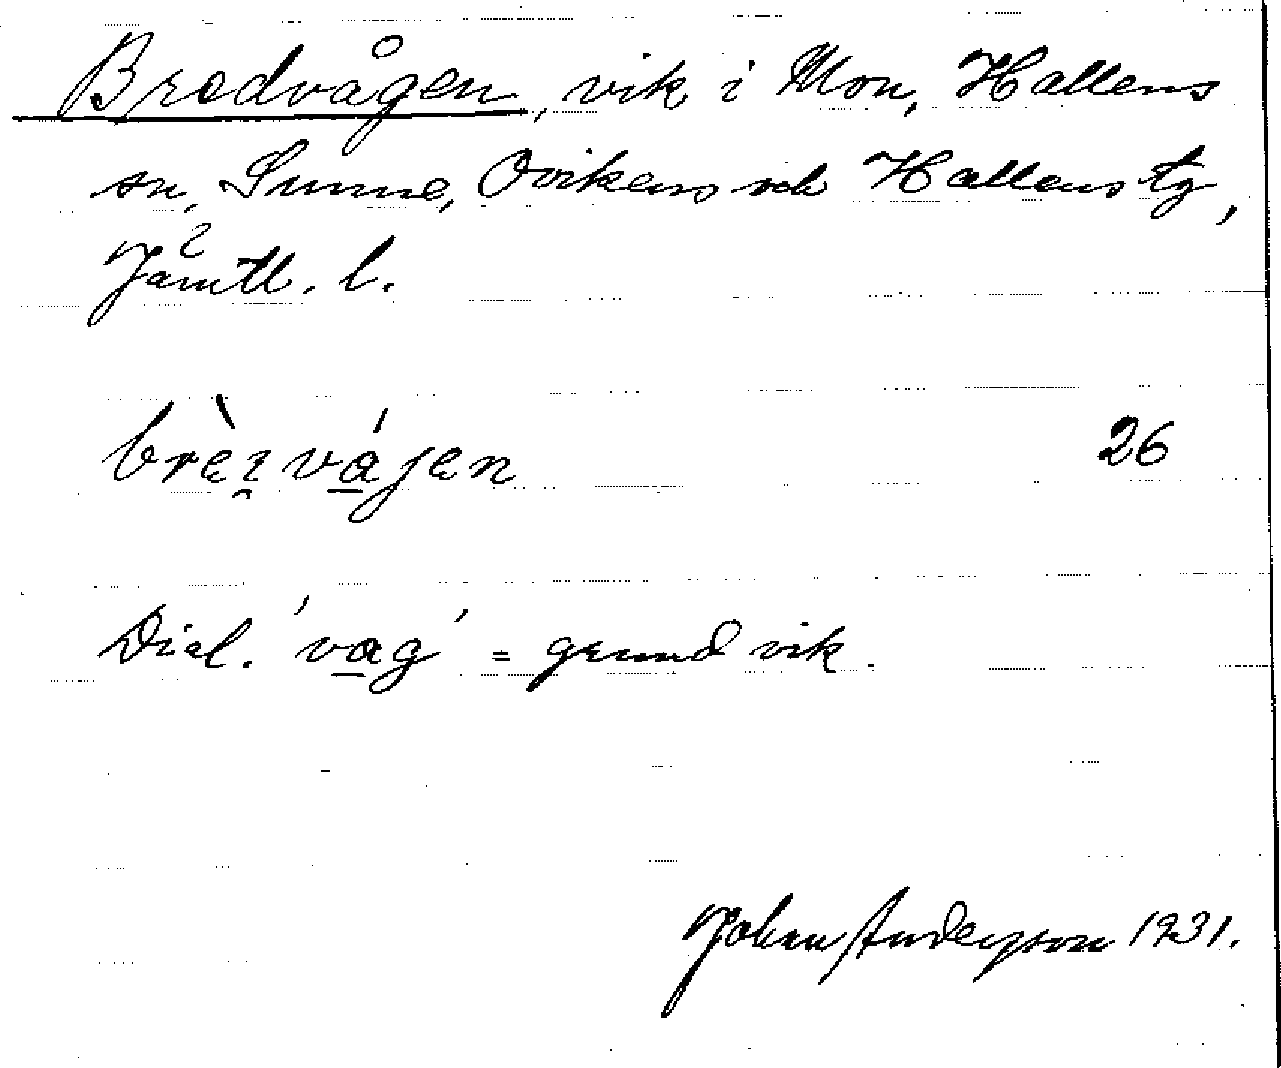 Bredvågen, vik i Mon, Hallens
sn, Sunne, Ovikens och Hallens tg,
Jämtl. l.
brèi̯vá̱jen 26
Dial. 'va̱g' = grund vik.
Johan Anderson 1931.